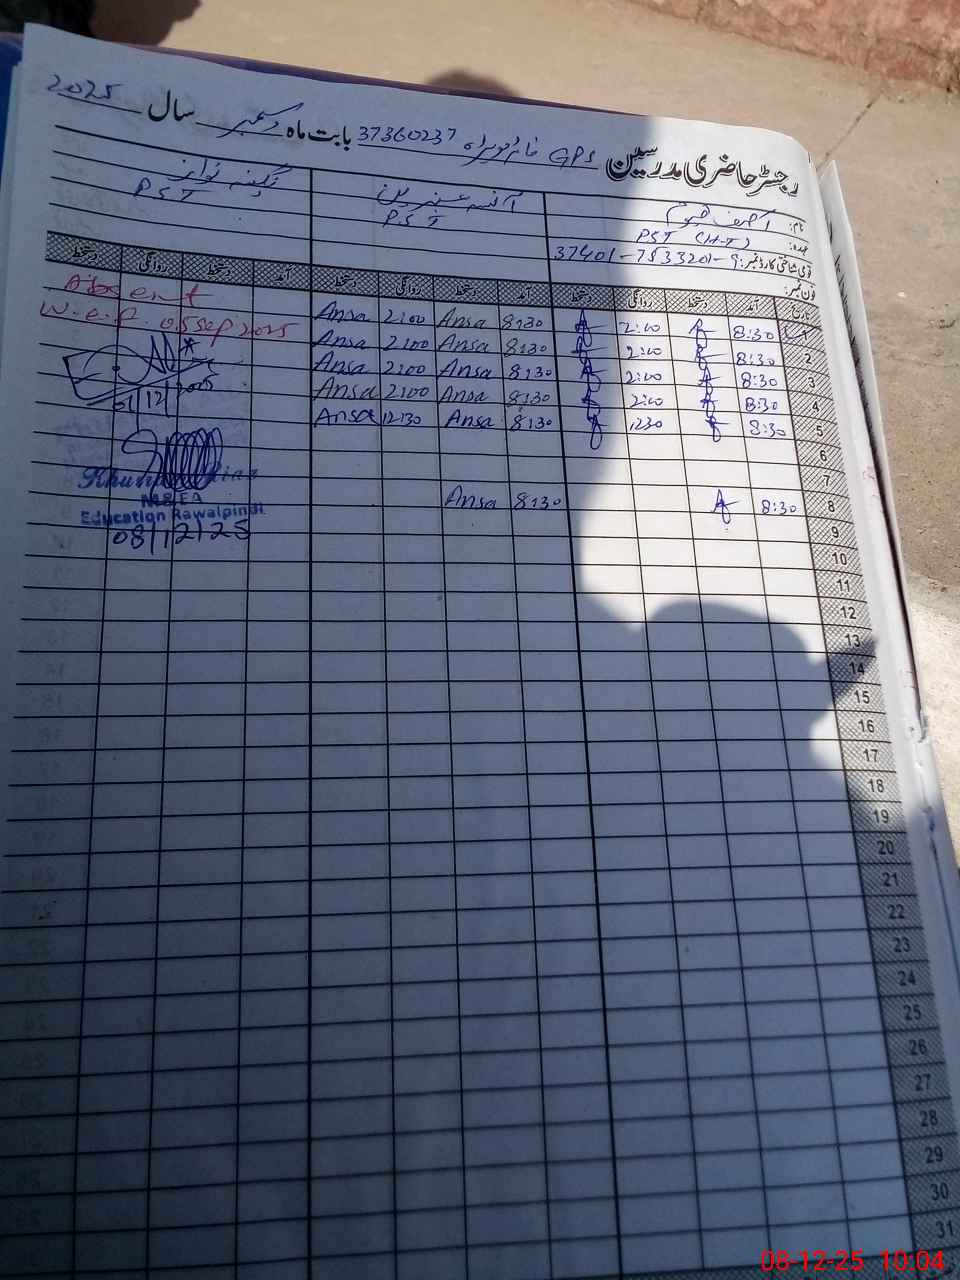 رجسٹر حاضری مدرسین GPS 37360237 بابت ماہ دسمبر سال 2025
نام:
عہدہ: PST (H-T) PST PST
قومی شناختی کارڈ نمبر: 37401-7533201-9
فون نمبر:
تاریخ آمد دستخط روانگی دستخط آمد دستخط روانگی دستخط آمد دستخط روانگی دستخط
1 8:30 2:00 8:30 Ansa 2:00 Ansa
2 8:30 2:00 8:30 Ansa 2:00 Ansa
3 8:30 2:00 8:30 Ansa 2:00 Ansa
4 8:30 2:00 8:30 Ansa 2:00 Ansa
5 8:30 1230 8:30 Ansa 12:30 Ansa
6
7
8 8:30 8:30 Ansa
9
10
11
12
13
14
15
16
17
18
19
20
21
22
23
24
25
26
27
28
29
30
31
Absent
W.e.f. 05 Sep 2025
01/12/2025
M&EA
Education Rawalpindi
08/12/25
08-12-25 10:04